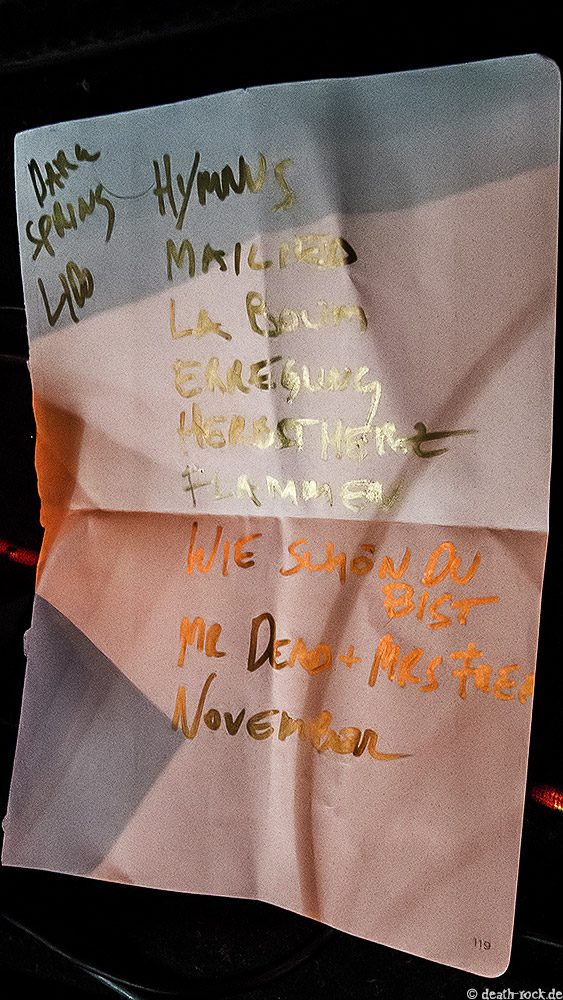 DARK
SPRING
LIDO
HYMNUS
MAILIED
LA BOUM
ERREGUNG
HERBSTHERZ
FLAMMEN
WIE SCHÖN DU
BIST
MR DEAD + MRS FREE
NOVEMBER
119
© death-rock.de